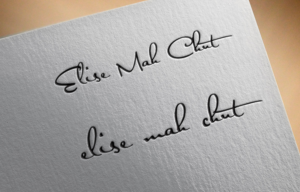 Elise Mah Chut
elise mah chut